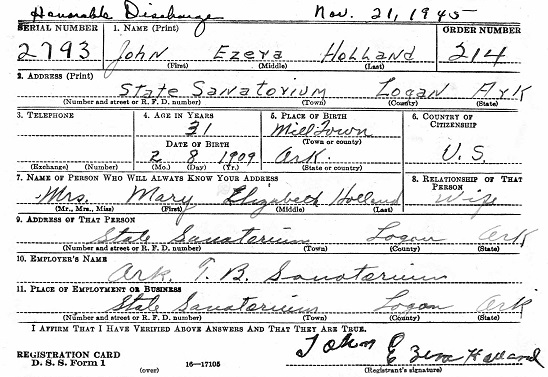 Honorable Discharge Nov. 21, 1945
SERIAL NUMBER 1. NAME (Print) ORDER NUMBER
2793 John Ezera Holland 214
(First) (Middle) (Last)
2. ADDRESS (Print)
State Sanatorium Logan Ark
(Number and street or R. F. D. number) (Town) (County) (State)
3. TELEPHONE 4. AGE IN YEARS 5. PLACE OF BIRTH 6. COUNTRY OF CITIZENSHIP
31 Mill Town
DATE OF BIRTH (Town or county) U.S.
2 8 1909 Ark.
(Exchange) (Number) (Mo.) (Day) (Yr.) (State or country)
7. NAME OF PERSON WHO WILL ALWAYS KNOW YOUR ADDRESS 8. RELATIONSHIP OF THAT PERSON
Mrs. Mary Elizabeth Holland Wife
(Mr., Mrs., Miss) (First) (Middle) (Last)
9. ADDRESS OF THAT PERSON
State Sanatorium Logan Ark
(Number and street or R. F. D. number) (Town) (County) (State)
10. EMPLOYER'S NAME
Ark. T. B. Sanatorium
11. PLACE OF EMPLOYMENT OR BUSINESS
State Sanatorium Logan Ark
(Number and street or R. F. D. number) (Town) (County) (State)
I AFFIRM THAT I HAVE VERIFIED ABOVE ANSWERS AND THAT THEY ARE TRUE.
John Ezera Holland
REGISTRATION CARD
D. S. S. Form 1 16—17105 (Registrant's signature)
(over)